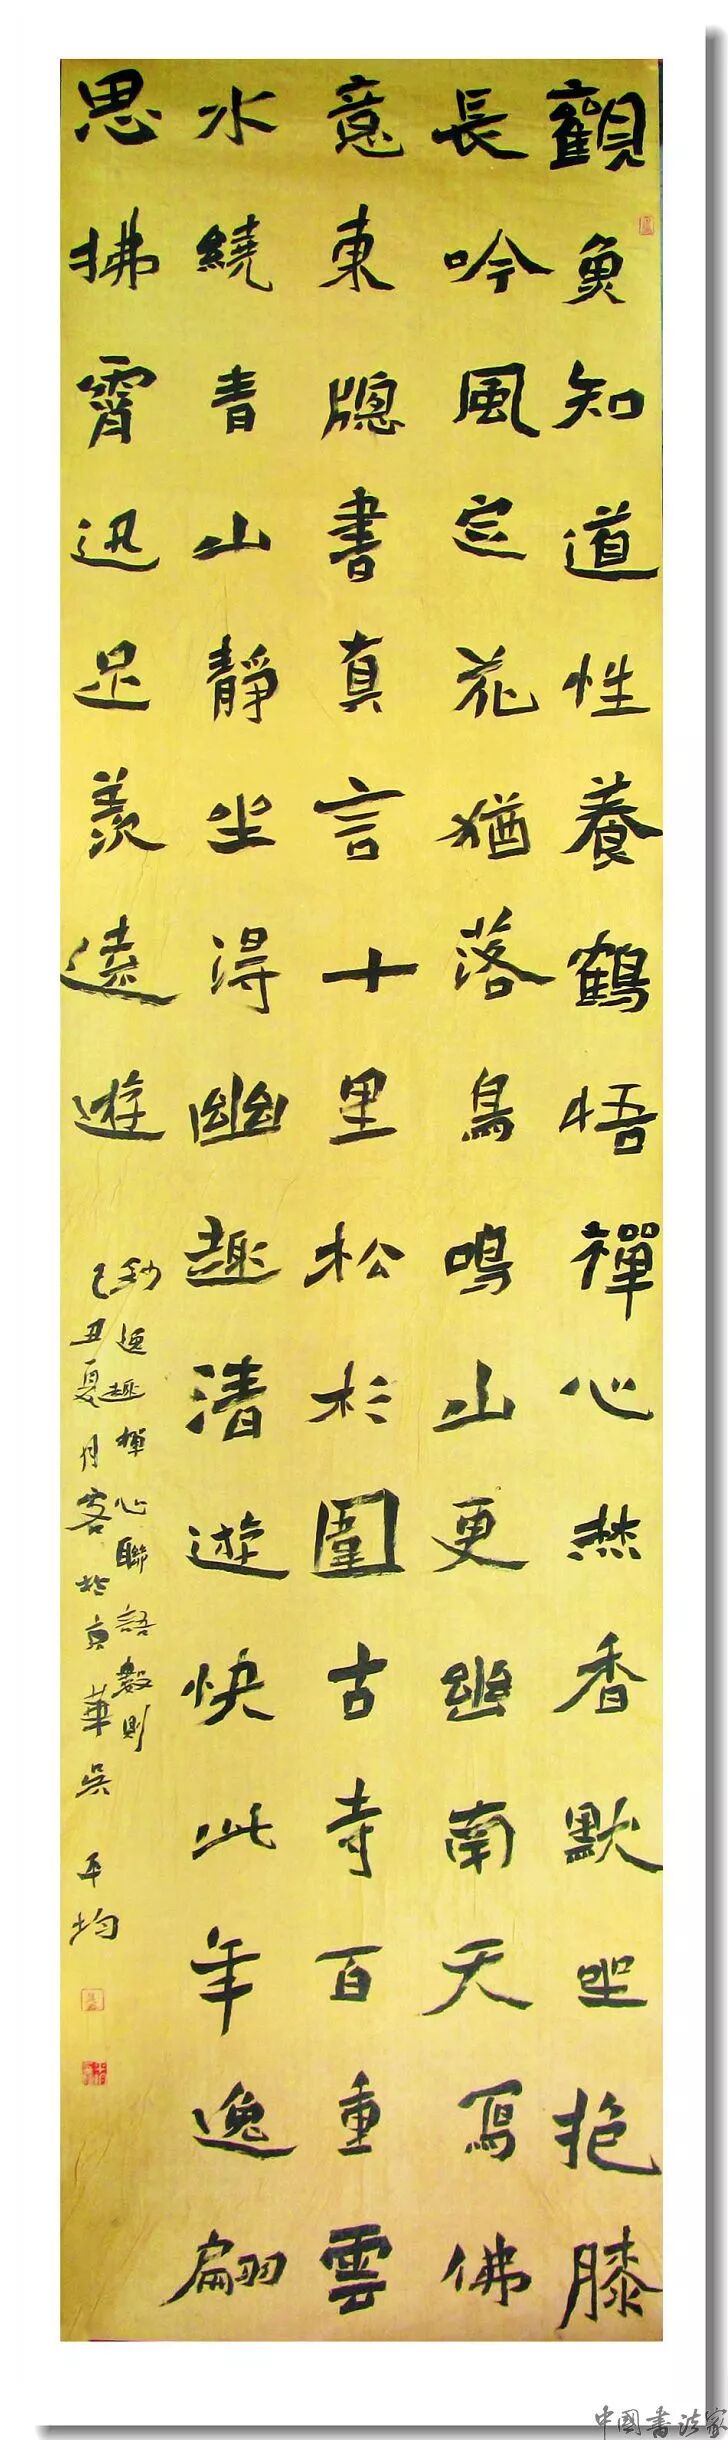 觀魚知道性養鶴悟禪心焚香默坐抱膝
長吟風定花猶落鳥鳴山更幽南天寫佛
意東牕書真言十里松杉圍古寺百重雲
水繞青山靜坐得幽趣清遊快此年逸翮
思拂霄迅足羨遠遊
抄逸趣禪心聯語數則
己丑夏月客於京華吳平均
中國書法家